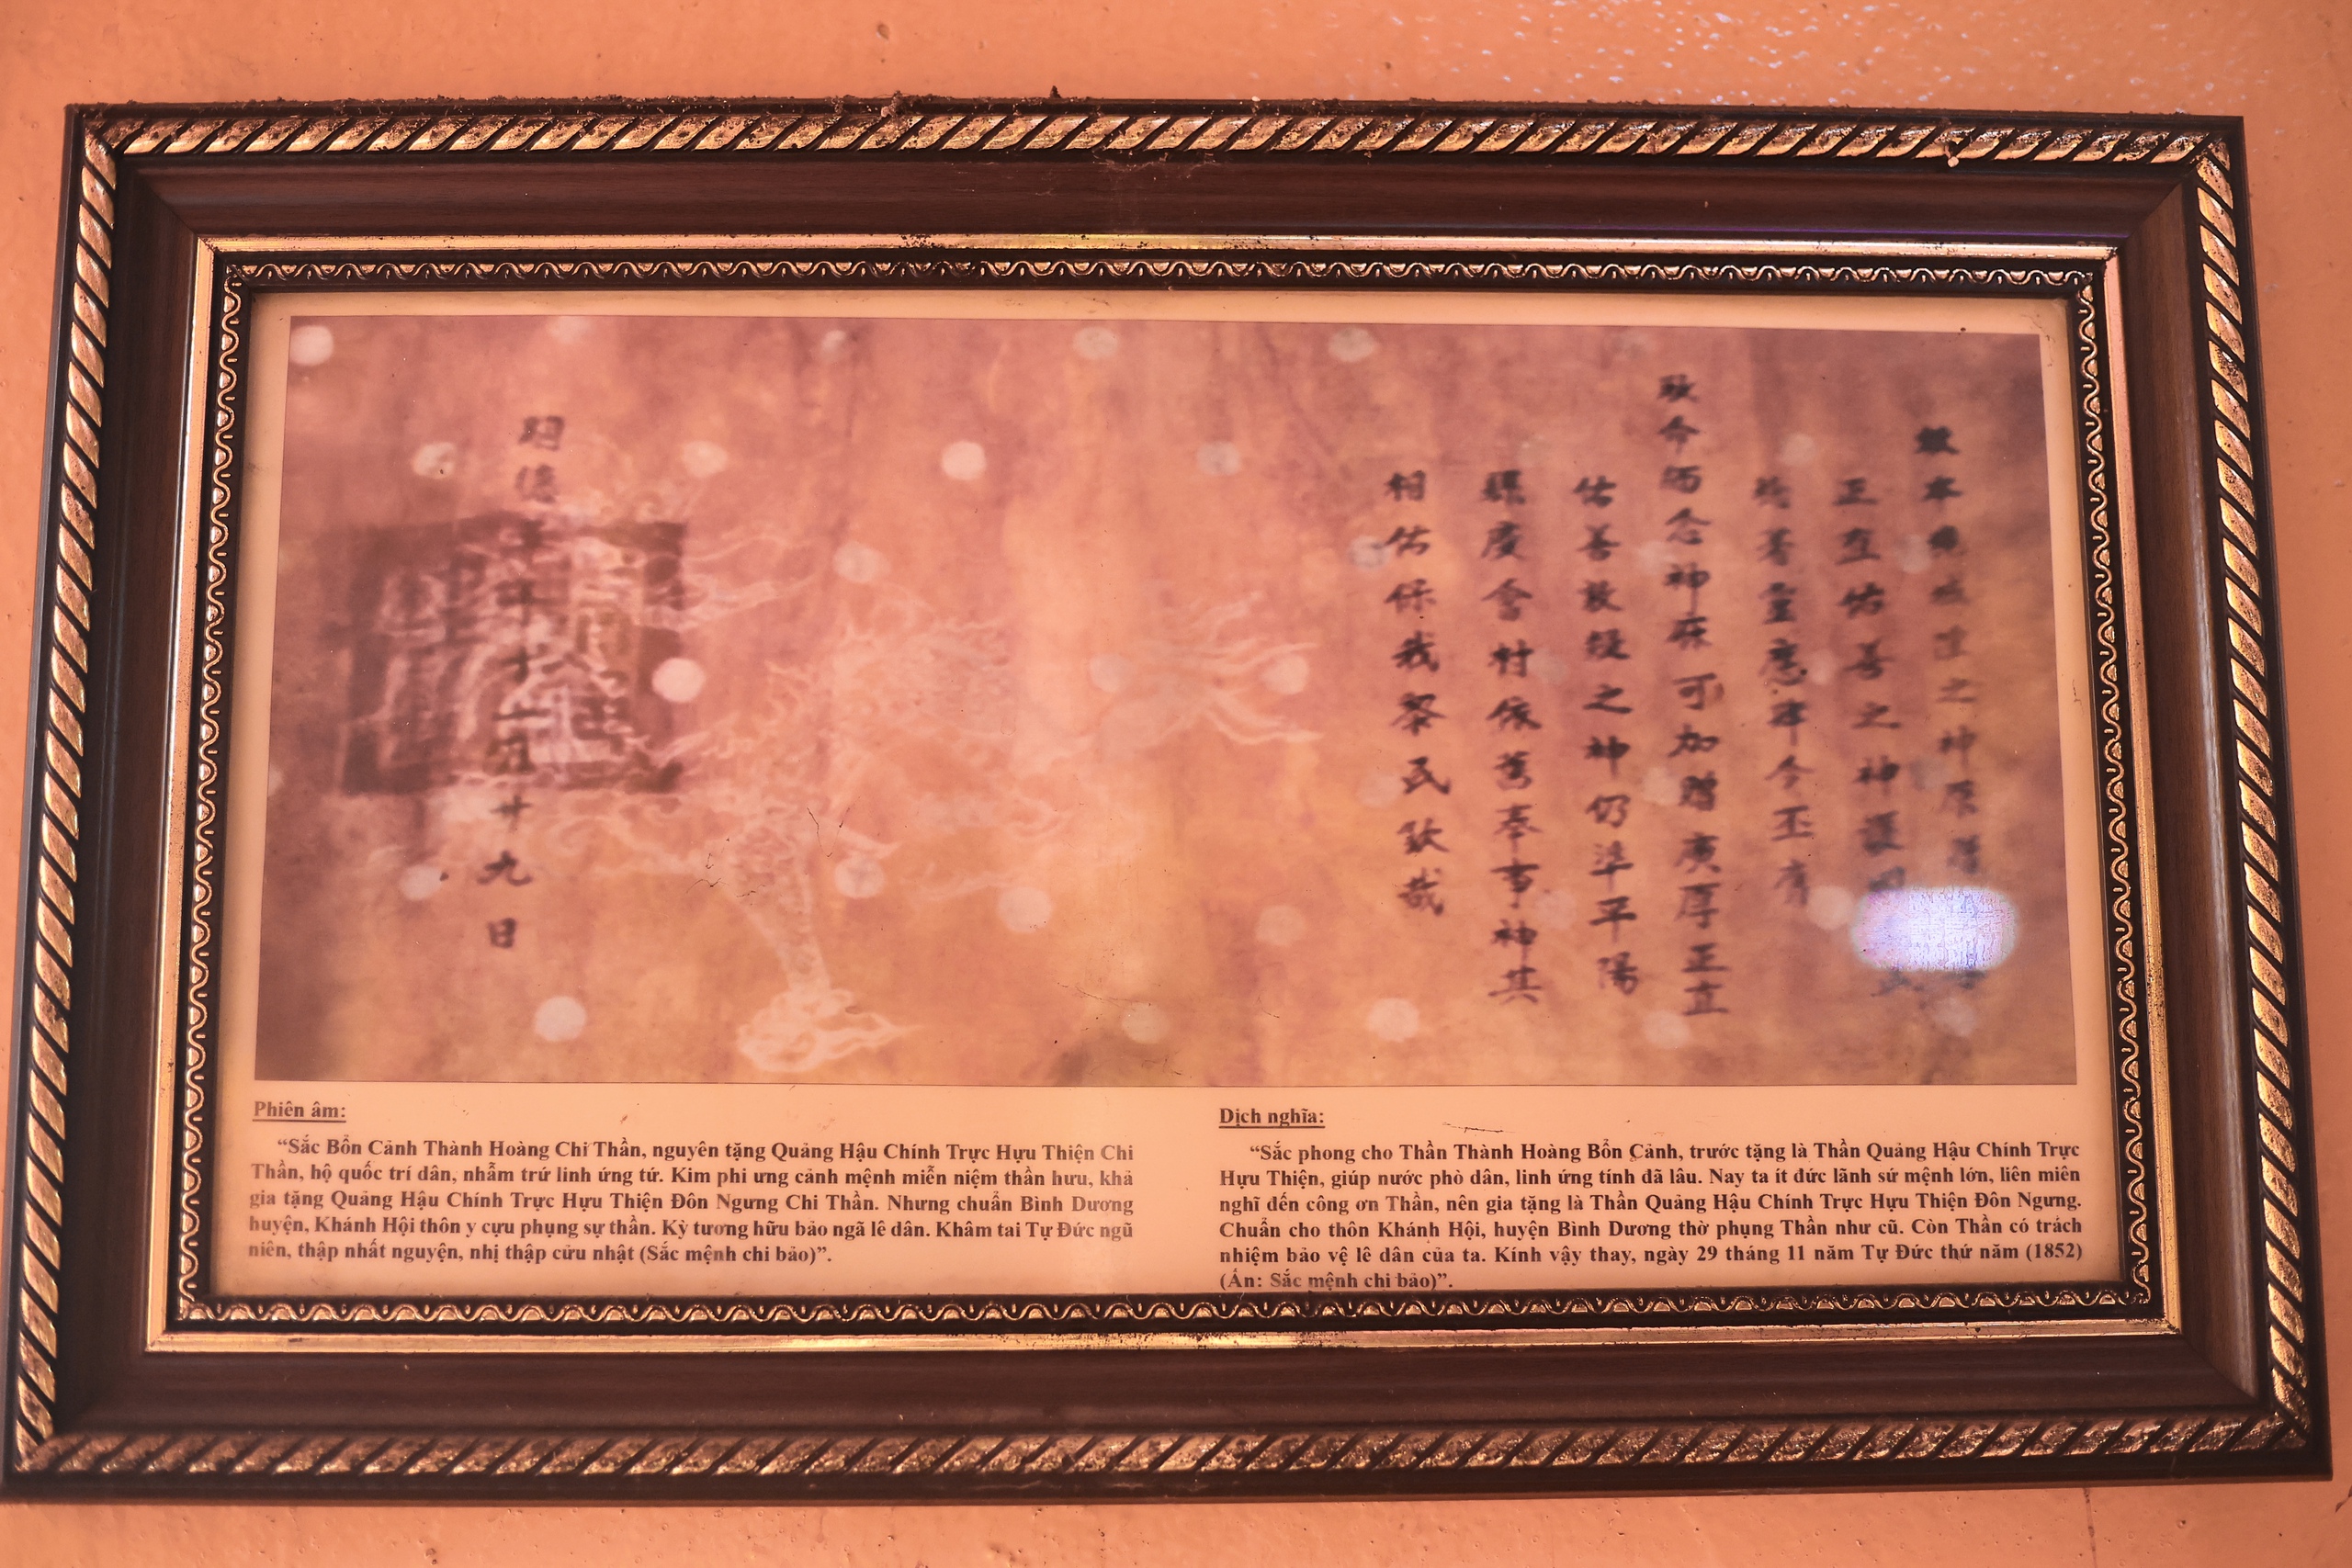 本境城隍之神原
正直佑善之神護
著靈應肆今丕膺
耿命緬念神庥可加贈廣厚正直
佑善敦凝之神仍準平陽
縣慶會村依舊奉事神其
相佑保我黎民欽哉
嗣德年十一月廿九日
Phiên âm:
“Sắc Bổn Cảnh Thành Hoàng Chi Thần, nguyên tặng Quảng Hậu Chính Trực Hựu Thiện Chi
Thần, hộ quốc trí dân, nhẫm trứ linh ứng tứ. Kim phi ưng cảnh mệnh miễn niệm thần hưu, khả
gia tặng Quảng Hậu Chính Trực Hựu Thiện Đôn Ngưng Chi Thần. Nhưng chuẩn Bình Dương
huyện, Khánh Hội thôn y cựu phụng sự thần. Kỳ tương hữu bảo ngã lê dân. Khâm tai Tự Đức ngũ
niên, thập nhất nguyện, nhị thập cửu nhật (Sắc mệnh chi bảo)”.
Dịch nghĩa:
“Sắc phong cho Thần Thành Hoàng Bổn Cảnh, trước tặng là Thần Quảng Hậu Chính Trực
Hựu Thiện, giúp nước phò dân, linh ứng tính đã lâu. Nay ta ít đức lãnh sứ mệnh lớn, liên miên
nghĩ đến công ơn Thần, nên gia tặng là Thần Quảng Hậu Chính Trực Hựu Thiện Đôn Ngưng.
Chuẩn cho thôn Khánh Hội, huyện Bình Dương thờ phụng Thần như cũ. Còn Thần có trách
nhiệm bảo vệ lê dân của ta. Kính vậy thay, ngày 29 tháng 11 năm Tự Đức thứ năm (1852)
(Ấn: Sắc mệnh chi bảo)”.